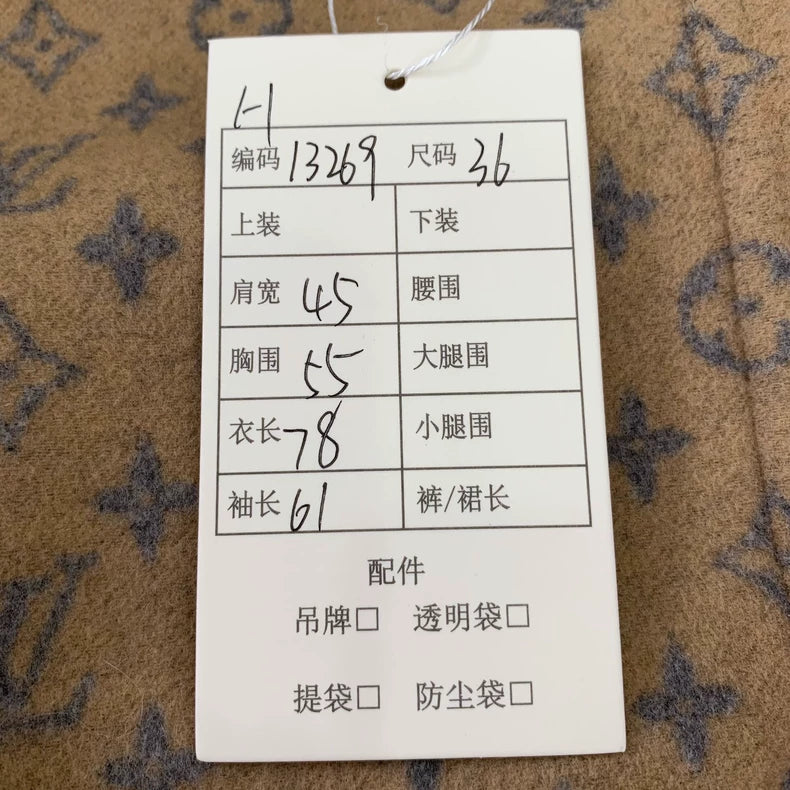 H
编码 13269 尺码 36
上装 下装
肩宽 45 腰围
胸围 55 大腿围
衣长 78 小腿围
袖长 61 裤/裙长
配件
吊牌□ 透明袋□
提袋□ 防尘袋□